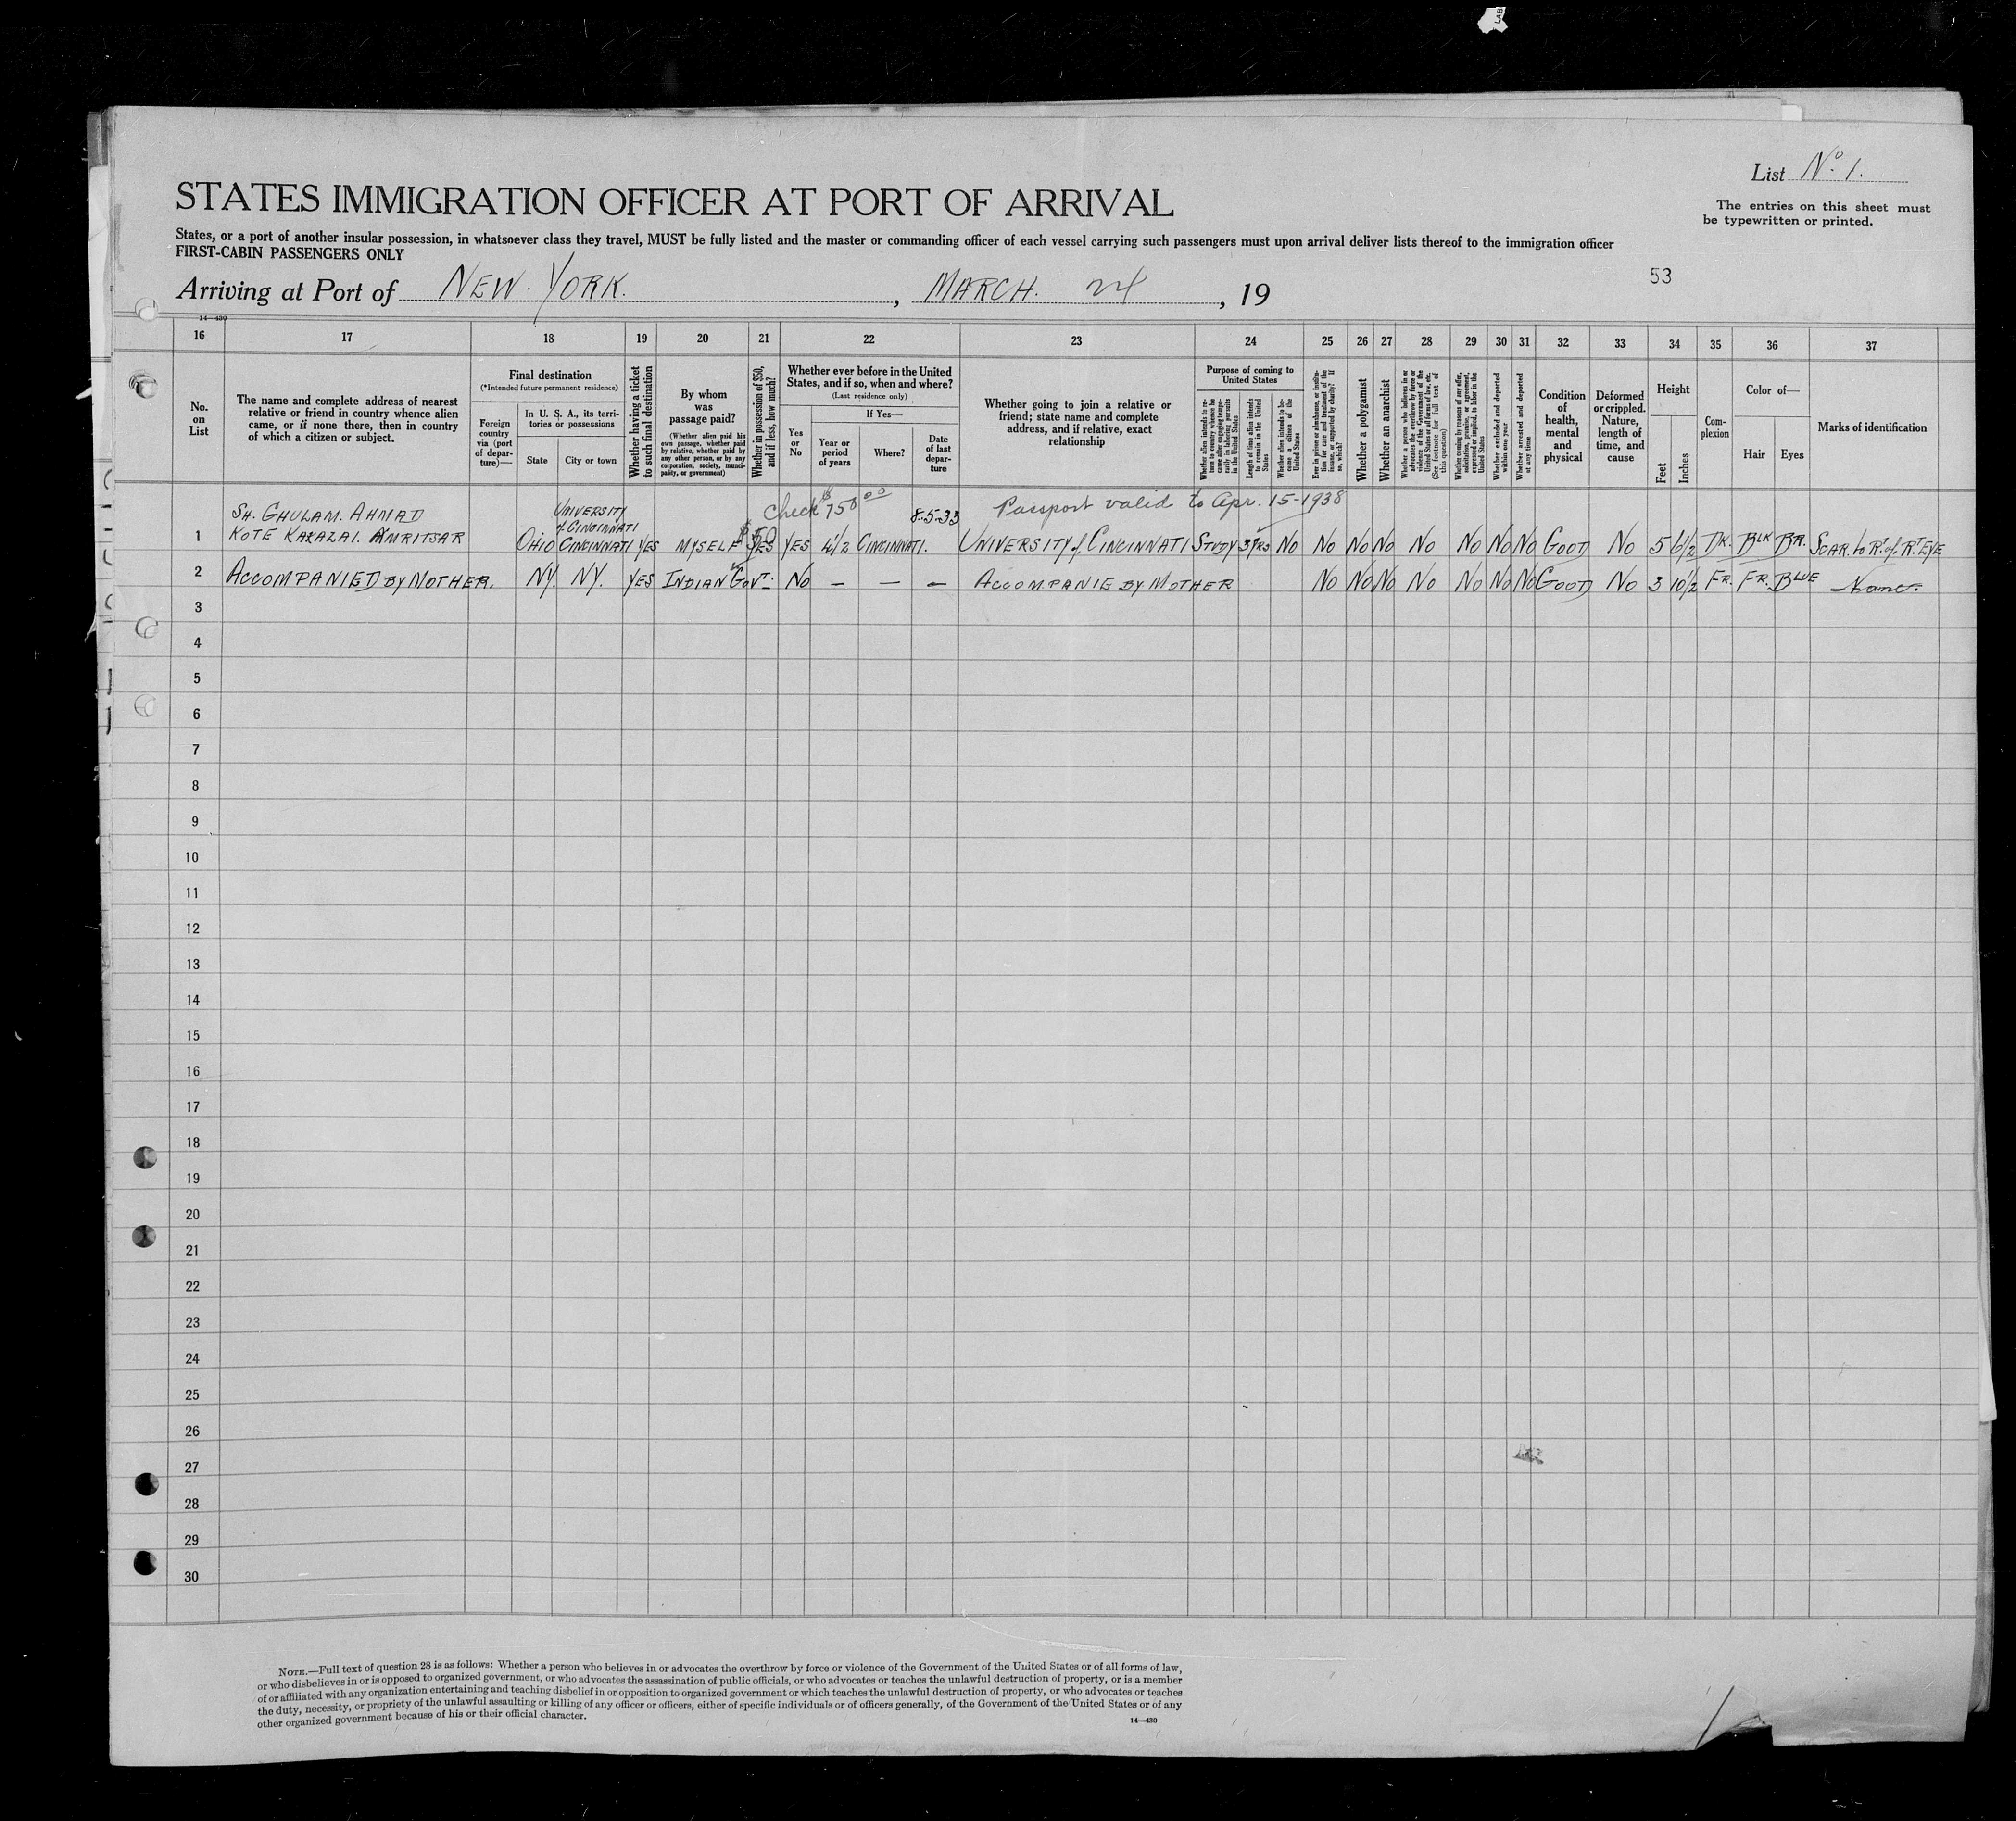 List No. 1.
The entries on this sheet must
be typewritten or printed.
STATES IMMIGRATION OFFICER AT PORT OF ARRIVAL
States, or a port of another insular possession, in whatsoever class they travel, MUST be fully listed and the master or commanding officer of each vessel carrying such passengers must upon arrival deliver lists thereof to the immigration officer
FIRST-CABIN PASSENGERS ONLY
53
Arriving at Port of NEW YORK. , MARCH. 24 , 19
14—430
16 17 18 19 20 21 22 23 24 25 26 27 28 29 30 31 32 33 34 35 36 37
No. on List
The name and complete address of nearest relative or friend in country whence alien came, or if none there, then in country of which a citizen or subject.
Final destination
(*Intended future permanent residence)
Foreign country via (port of departure)—
In U. S. A., its territories or possessions
State
City or town
Whether having a ticket to such final destination
By whom was passage paid?
(Whether alien paid his own passage, whether paid by relative, whether paid by any other person, or by any corporation, society, municipality, or government)
Whether in possession of $50, and if less, how much?
Whether ever before in the United States, and if so, when and where?
(Last residence only)
Yes or No
If Yes—
Year or period of years
Where?
Date of last departure
Whether going to join a relative or friend; state name and complete address, and if relative, exact relationship
Purpose of coming to United States
Whether alien intends to return to country whence he came after engaging temporarily in laboring pursuits in the United States
Length of time alien intends to remain in the United States
Whether alien intends to become a citizen of the United States
Ever in prison or almshouse, or institution for care and treatment of the insane, or supported by charity? If so, which?
Whether a polygamist
Whether an anarchist
Whether a person who believes in or advocates the overthrow by force or violence of the Government of the United States or all forms of law, etc. (See footnote for full text of this question)
Whether coming by reasons of any offer, solicitation, promise, or agreement, expressed or implied, to labor in the United States
Whether excluded and deported within one year
Whether arrested and deported at any time
Condition of health, mental and physical
Deformed or crippled. Nature, length of time, and cause
Height
Feet
Inches
Complexion
Color of—
Hair
Eyes
Marks of identification
check $750 00 8-5-33 Passport valid to Apr. 15-1938
SH. GHULAM. AHMAD UNIVERSITY
of CINCINNATI
1 KOTE KAKAZAI. AMRITSAR OHIO CINCINNATI YES MYSELF $50 YES YES 4½ CINCINNATI. UNIVERSITY of CINCINNATI STUDY 3 YRS NO NO NO NO NO NO NO NO GOOD NO 5 6½ DK. BLK BR. SCAR. to R. of RT EYE
2 ACCOMPANIED BY MOTHER. NY. NY. YES INDIAN GOVT. NO — — — ACCOMPANIE BY MOTHER NO NO NO NO NO NO NO GOOD NO 3 10½ FR. FR. BLUE None.
3
4
5
6
7
8
9
10
11
12
13
14
15
16
17
18
19
20
21
22
23
24
25
26
27
28
29
30
NOTE.—Full text of question 28 is as follows: Whether a person who believes in or advocates the overthrow by force or violence of the Government of the United States or of all forms of law,
or who disbelieves in or is opposed to organized government, or who advocates the assassination of public officials, or who advocates or teaches the unlawful destruction of property, or is a member
of or affiliated with any organization entertaining and teaching disbelief in or opposition to organized government or which teaches the unlawful destruction of property, or who advocates or teaches
the duty, necessity, or propriety of the unlawful assaulting or killing of any officer or officers, either of specific individuals or of officers generally, of the Government of the United States or of any
other organized government because of his or their official character.
14—430